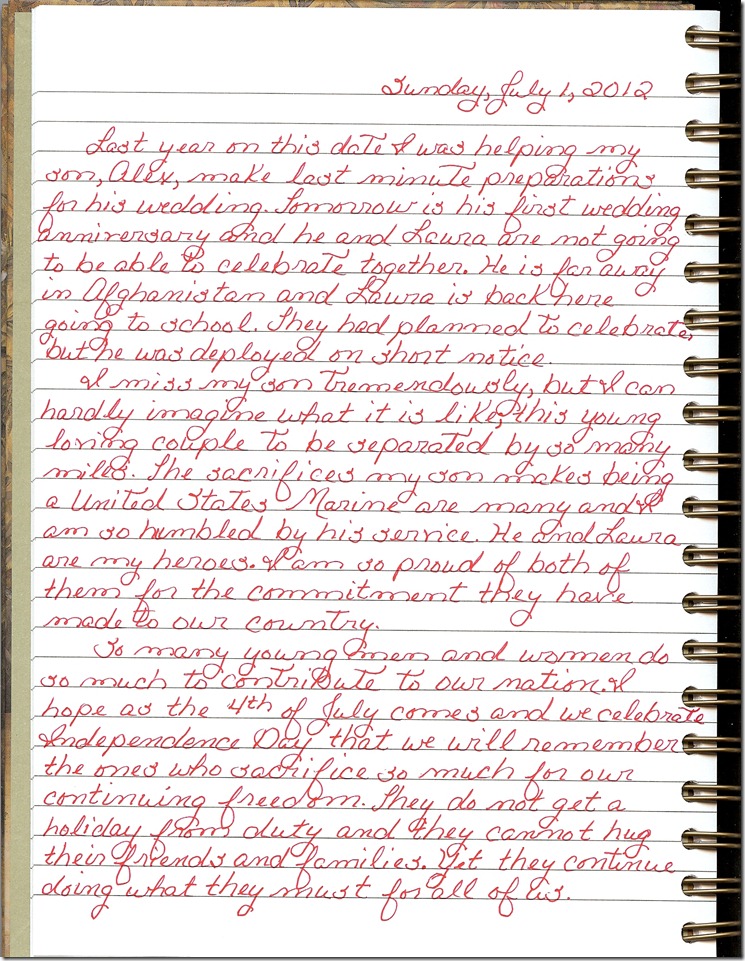 Sunday, July 1, 2012
Last year on this date I was helping my
son, Alex, make last minute preparations
for his wedding. Tomorrow is his first wedding
anniversary and he and Laura are not going
to be able to celebrate together. He is far away
in Afghanistan and Laura is back here
going to school. They had planned to celebrate,
but he was deployed on short notice.
I miss my son tremendously, but I can
hardly imagine what it is like, this young
loving couple to be separated by so many
miles. The sacrifices my son makes being
a United States Marine are many and I
am so humbled by his service. He and Laura
are my heroes. I am so proud of both of
them for the commitment they have
made to our country.
So many young men and women do
so much to contribute to our nation. I
hope as the 4th of July comes and we celebrate
Independence Day that we will remember
the ones who sacrifice so much for our
continuing freedom. They do not get a
holiday from duty and they cannot hug
their friends and families. Yet they continue
doing what they must for all of us.